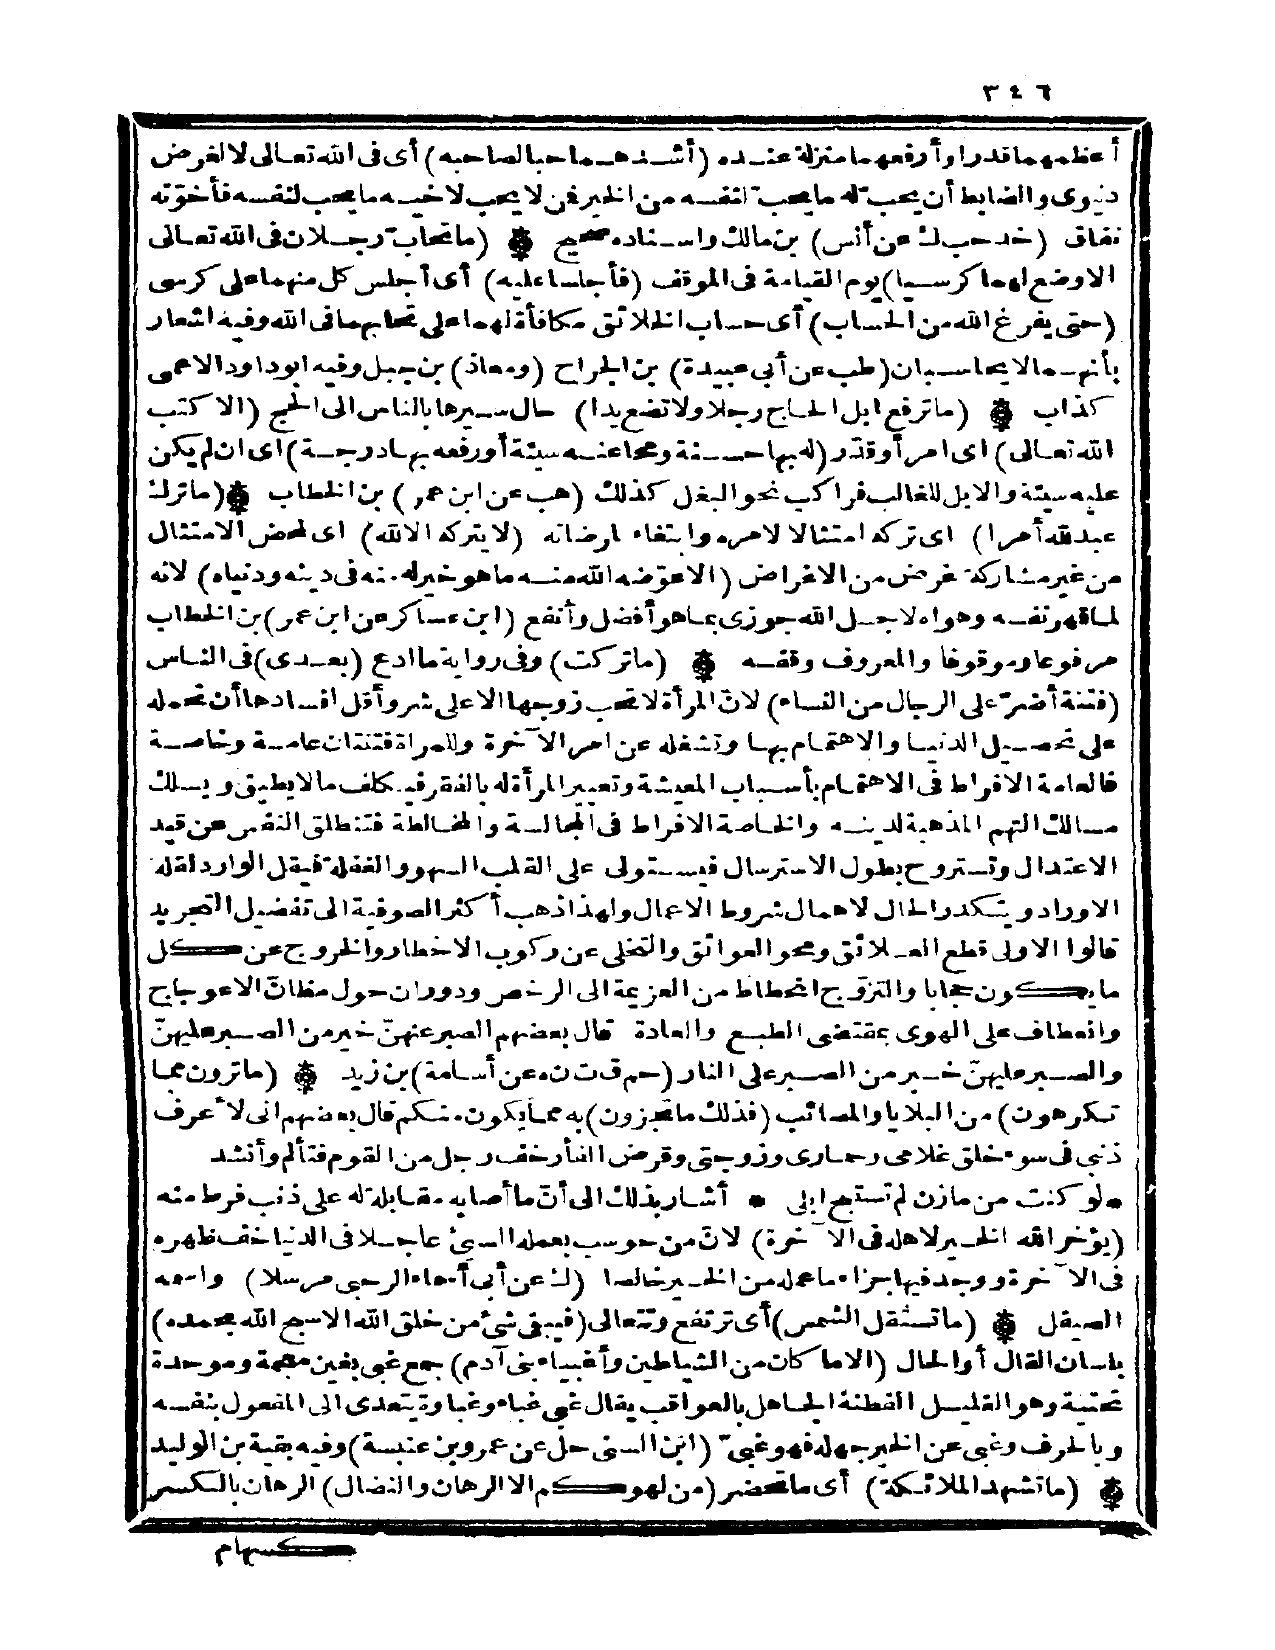 ٣٤٦
أعظمهما قدرا وأرفعهما منزلة عنده (أشدهما حبا لصاحبه) أى فى الله تعالى لا لغرض
دنيوى والضابط أن يحب له ما يحب لنفسه من الخير فمن لا يحب لاخيه ما يحب لنفسه فأخوّته
نفاق (خد حب ك عن أنس) بن مالك واسناده صحيح ۞ (ما تحاب رجلان فى الله تعالى
الا وضع لهما كرسيا) يوم القيامة فى الموقف (فأجلسا عليه) أى أجلس كل منهما على كرسى
(حتى يفرغ الله من الحساب) أى حساب الخلائق مكافأة لهما على تحابهما فى الله وفيه اشعار
بأنهما لا يحاسبان (طب عن أبى عبيدة) بن الجراح (ومعاذ) بن جبل وفيه ابو داود الاعمى
كذاب ۞ (ما ترفع ابل الحاج رجلا ولا تضع يدا) حال سيرها بالناس الى الحج (الا كتب
الله تعالى) اى امر أو قدّر (له بها حسنة ومحا عنه سيئة أو رفعه بها درجة) اى ان لم يكن
عليه سيئة والابل للغالب فراكب نحو البغل كذلك (هب عن ابن عمر) بن الخطاب ۞ (ما ترك
عبد لله أمرا) اى تركه امتثالا لامره وابتغاء ارضائه (لا يتركه الا لله) اى لمحض الامتثال
من غير مشاركة غرض من الاغراض (الا عوّضه الله منه ما هو خير له منه فى دينه ودنياه) لانه
لما قهر نفسه وهواه لاجل الله جوزى بما هو أفضل وأنفع (ابن عساكر عن ابن عمر) بن الخطاب
مرفوعا وموقوفا والمعروف وقفه ۞ (ما تركت) وفى رواية ما ادع (بعدى) فى الناس
(فتنة أضرّ على الرجال من النساء) لانّ المرأة لا تحب زوجها الا على شر وأقل افسادها أن تحمله
على تحصيل الدنيا والاهتمام بها وتشغله عن امر الآخرة وللمراة فتنتان عامة وخاصة
فالعامة الافراط فى الاهتمام بأسباب المعيشة وتعيير المرأة له بالفقر فيكلف ما لا يطيق ويسلك
مسالك التهم المذهبة لدينه والخاصة الافراط فى المجالسة والمخالطة فتنطلق النفس عن قيد
الاعتدال وتستروح بطول الاسترسال فيستولى على القلب السهو والغفلة فيقل الوارد لقلة
الاوراد ويتكدر الحال لاهمال شروط الاعمال ولهذا ذهب أكثر الصوفية الى تفضيل التجريد
قالوا الاولى قطع العلائق ومحو العوائق والتخلى عن ركوب الاخطار والخروج عن كل
ما يكون حجابا والتزوّج انحطاط من العزيمة الى الرخص ودوران حول مظانّ الاعوجاج
وانعطاف على الهوى بمقتضى الطبع والعادة قال بعضهم الصبر عنهنّ خير من الصبر عليهنّ
والصبر عليهنّ خير من الصبر على النار (حم ق ت ن ه عن أسامة) بن زيد ۞ (ما ترون مما
تكرهون) من البلايا والمصائب (فذلك ما تجزون) به مما يكون منكم قال بعضهم انى لأعرف
ذنبى فى سوء خلق غلامى وحمارى وزوجتى وقرض الفأر خف رجل من القوم فتألم وأنشد
• لو كنت من مازن لم تستبح ابلى • أشار بذلك الى أنّ ما أصابه مقابلة له على ذنب فرط منه
(يؤخر الله الخير لاهله فى الآخرة) لانّ من حوسب بعمله السيئ عاجلا فى الدنيا خف ظهره
فى الآخرة ووجد فيها جزاء ما عمله من الخير خالصا (ك عن أبى أسماء الرحبى مرسلا) واسمه
الصيقل ۞ (ما تستقل الشمس) أى ترتفع وتتعالى (فيبقى شئ من خلق الله الا سبح الله بحمده)
بلسان القال أو الحال (الا ما كان من الشياطين وأغبياء بنى آدم) جمع غبى بغين معجمة وموحدة
تحتية وهو القليل الفطنة الجاهل بالعواقب يقال غبى غباء وغباوة يتعدى الى المفعول بنفسه
وبالحرف وغبى عن الخير جهله فهو غبىّ (ابن السنى حل عن عمرو بن عنبسة) وفيه بقية بن الوليد
۞ (ما تشهد الملائكة) أى ما تحضر (من لهوكم الا الرهان والنضال) الرهان بالكسر
كسهام